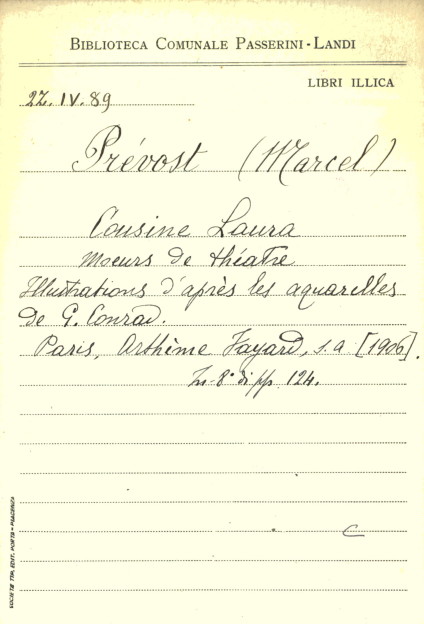 BIBLIOTECA COMUNALE PASSERINI-LANDI
LIBRI ILLICA
22.IV.89
Prévost (Marcel)
Cousine Laura
Moeurs de théatre
Illustrations d'après les aquarelles
de G. Conrad.
Paris, Arthème Fayard, s.a [1906].
In-8° di pp. 124.
C